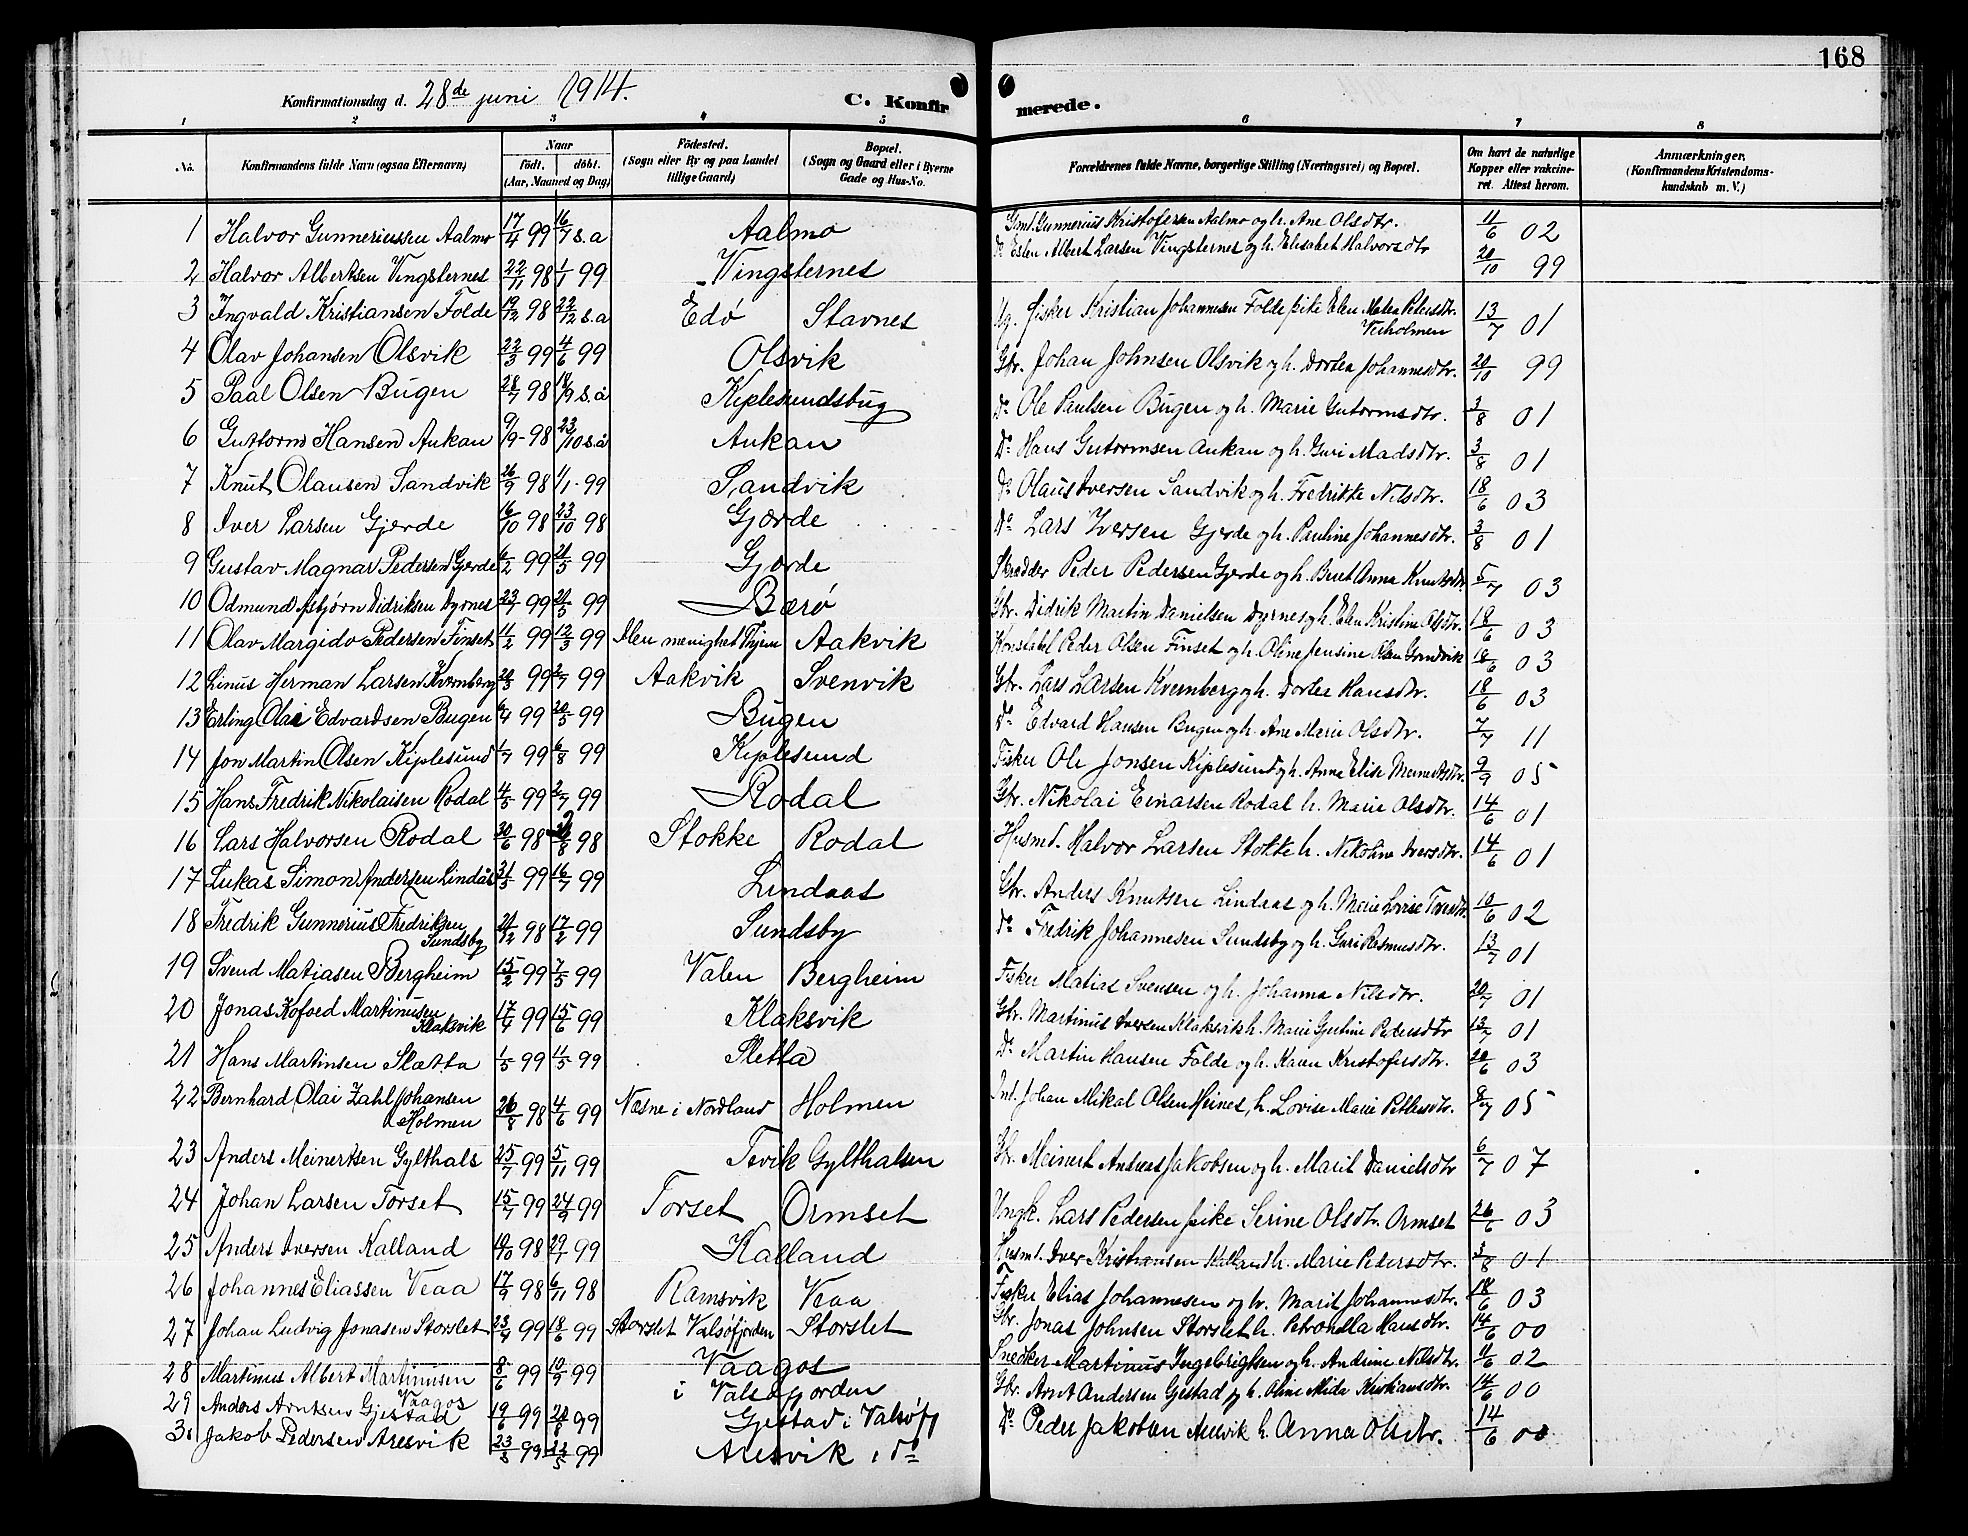 168
Konfirmationsdag d. 28de juni 1914. C. Konfirmerede.
1 2 3 4 5 6 7 8
No. Konfirmandens fulde Navn (ogsaa Efternavn) Naar født. døbt. (Aar, Maaned og Dag) Fødested. (Sogn eller By og paa Landet tillige Gaard) Bopæl. (Sogn og Gaard eller i Byerne Gade og Hus-No. Forældrenes fulde Navne, borgerlige Stilling (Næringsvei) og Bopæl. Om havt de naturlige Kopper eller vakcineret. Attest herom. Anmærkninger. (Konfirmandens Kristendomskundskab m. V.)
1 Halvor Gunneriussen Aalmo 17/4 99 16/7 s.a Aalmo Gmd. Gunnerius Kristofersen Aalmo og h. Ane Olsdtr. 11/6 02
2 Halvor Albertsen Vingsternes 22/11 98 1/1 99 Vingsternes Do Esten Albert Larsen Vingsternes og h. Elisabet Halvorsdtr 20/10 99
3 Ingvald Kristiansen Folde 19/12 98 22/12 s.a Edø Stavnes Ug. fisker Kristian Johannesen Folde pike Elen Matea Petersdtr. Veiholmen 13/7 01
4 Olav Johansen Olsvik 22/3 99 4/6 99 Olsvik Gbr. Johan Johnsen Olsvik og h. Dortea Johannesdtr. 20/10 99
5 Paal Olsen Bugen 28/7 98 18/9 s.å Kiplesundsbug Do Ole Paulsen Bugen og h. Marie Gutormsdtr. 3/8 01
6 Guttorm Hansen Aukan 9/9 - 98 23/10 s.å Aukan Do Hans Gutormsen Aukan og h. Guri Madsdtr. 3/8 01
7 Knut Olausen Sandvik 26/9 98 1/1 - 99 Sandvik Do Olaus Iversen Sandvik og h. Fredrikke Nilsdtr. 18/6 03
8 Iver Larsen Gjerde 16/10 98 23/10 98 Gjærde Do Lars Iversen Gjerde og h. Pauline Johannesdtr. 3/8 01
9 Gustav Magnar Pedersen Gjerde 6/2 99 21/5 99 Gjærde Skrædder Peder Pedersen Gjerde og h. Beret Anna Knutsdtr. 5/7 03
10 Odmund Asbjørn Didriksen Dyrnes 23/1 99 21/5 99 Bærø Gbr. Didrik Martin Danielsen Dyrnes og h. Elen Kristine Olsdtr 18/6 03
11 Olav Margido Pedersen Finset 11/2 99 12/3 99 Ilen menighet Thjem Aakvik Konstabl Peder Olsen Finset og h. Oline Jensine Olsen Grindvik 18/6 03
12 Linus Herman Larsen Kvernberg 99 99 Aakvik Svenvik Gbr. Lars Larsen Kvernberg og h. Dortea Hansdtr. 18/6 03
13 Erling Olai Edvardsen Bugen 6/4 99 20/5 99 Bugen Do Edvard Hansen Bugen og h. Ane Marie Olsdtr. 7/7 11
14 Jon Martin Olsen Kiplesund 1/7 99 6/8 99 Kiplesund Fisker Ole Jonsen Kiplesund og h. Anna Elise 9/9 05
15 Hans Fredrik Nikolaisen Rodal 4/5 99 2/7 99 Rodal Gbr. Nikolai Einarsen Rodal h. Marie Olsdtr. 14/6 01
16 Lars Halvorsen Rodal 30/6 98 98 Stokke Rodal Husmd. Halvor Larsen Stokke h. Nikoline Iversdtr. 14/6 01
17 Lukas Simon Andersen Lindås 21/5 99 16/7 99 Lindaas Gbr. Anders Knutsen Lindaas og h. Marie Lovise 10/6 02
18 Fredrik Gunnerius Fredriksen Sundsby 21/12 98 17/2 99 Sundsby Do Fredrik Johannesen Sundsby og h. Guri Rasmusdtr. 13/7 01
19 Svend Matiasen Bergheim 15/2 99 7/5 99 Valen Bergheim Fisker Matias Svensen og h. Johanna Nilsdtr. 20/7 01
20 Jonas Kofoed Martinusen Klaksvik 17/4 99 15/6 99 Klaksvik Gbr. Martinus Iversen Klaksvik h. Marie Gjertine Pedersdtr 13/7 01
21 Hans Martinsen Slætta 1/5 99 11/5 99 Sletta Do Martin Hansen Folde og h. Karen Kristofersdtr. 20/6 03
22 Bernhard Olai Zahl Johansen Holmen 26/8 98 4/6 99 Næsne i Nordland Holmen Johan Mikal Olsen Heines, h. Lovise Marie Pettersdtr. 8/7 05
23 Anders Meinertsen Gylthals 25/7 99 5/11 99 Tevik Gylthalsen Gbr. Meinert Andreas Jakobsen og h. Marit Danielsdtr 6/7 07
24 Johan Larsen Torset 15/7 99 24/9 99 Torset Ormset Ungk. Lars Pedersen pike Serine Olsdtr. Ormset 26/6 03
25 Anders Iversen Kalland 10/10 98 29/1 99 Kalland Husmd. Iver Kristiansen Kalland h. Marie Pedersdtr. 3/8 01
26 Johannes Eliassen Veaa 17/9 98 6/11 98 Ramsvik Veaa Fisker Elias Johannesen og h. Marit Johannesdtr. 18/6 03
27 Johan Ludvig Jonasen Storslet 23/4 99 18/6 99 Storslet Valsøfjorden Storslet Gbr. Jonas Johnsen Storslet h. Petronella Hansdtr. 14/6 00
28 Martinus Albert Martinusen Vaagos 8/6 99 10/9 99 Vaagos i Valsøfjorden Snedker Martinus Ingebrigtsen og h. Andrine Nilsdtr. 11/6 02
29 Anders Arntsen Gjestad 19/6 99 20/8 99 Gjestad i Valsøfj Gbr. Arnt Andersen Gjestad og h. Oline Mida Kristiansdtr. 14/6 00
30 Jakob Pedersen Aresvik 23/3 99 22/5 99 Aresvik i do Do Peder Jakobsen Aresvik h. Anna Olsdtr. 14/6 00